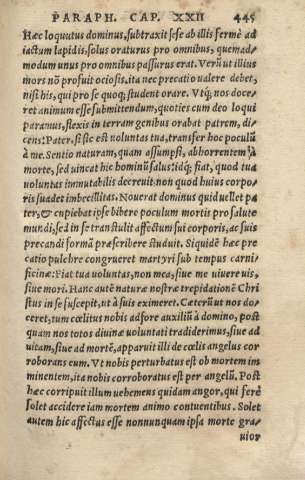 PARAPH. CAP. XXII 445
Hæc loquutus dominus, subtraxit sese ab illis fermè ad
iactum lapidis, solus oraturus pro omnibus, quemad⸗
modum unus pro omnibus passurus erat. Verũ ut illius
mors nõ profuit ociosis, ita nec precatio ualere debet,
nisi his, qui pro se quoq; student orare. Vtq́; nos doce⸗
ret animum esse submittendum, quoties cum deo loqui
paramus, flexis in terram genibus orabat patrem, di⸗
cens: Pater, si sic est uoluntas tua, transfer hoc poculũ
à me. Sentio naturam, quam assumpsi, abhorrentem à
morte, sed uincat hic hominũ salus: idq́; fiat, quod tua
uoluntas immutabilis decreuit non quod huius corpo⸗
ris suadet imbecillitas. Nouerat dominus quid uellet pa
ter, & cupiebat ipse bibere poculum mortis pro salute
mundi, sed in se transtulit affectum sui corporis, ac suis
precandi formã præscribere studuit. Siquidẽ hæc pre
catio pulchre congrueret martyri sub tempus carni⸗
ficinæ: Fiat tua uoluntas, non mea, siue me uiuere uis,
siue mori. Hanc autẽ naturæ nostræ trepidationẽ Chri
stus in se suscepit, ut à suis eximeret. Cæterũ ut nos do⸗
ceret, tum cœlitus nobis adfore auxiliũ à domino, post
quam nos totos diuinæ uoluntati tradiderimus, siue ad
uitam, siue ad mortẽ, apparuit illi de cœlis angelus cor
roborans eum. Vt nobis perturbatus est ob mortem im
minentem, ita nobis corroboratus est per angelũ. Post
hæc corripuit illum uehemens quidam angor, qui ferè
solet accidere iam mortem animo contuentibus. Solet
autem hic affectus esse nonnunquam ipsa morte gra⸗
uior